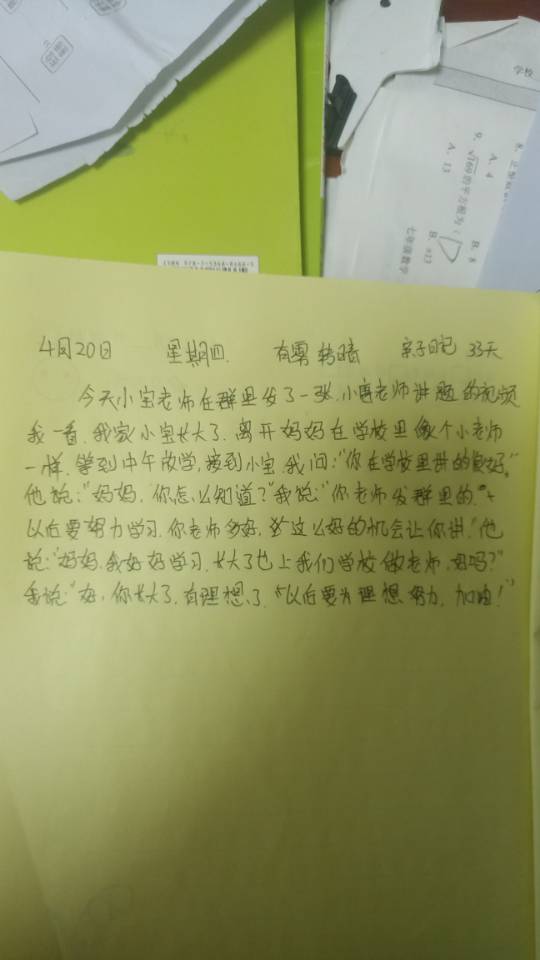 学校
8、正
A、4
B、8
9、√169的平方根为(
A、13
B、±13
七年级数学
4月20日 星期四 有雾转晴 亲子日记 33天
今天小宝老师在群里发了一张,小唐老师讲题的视频
我一看,我家小宝长大了,离开妈妈在学校里像个小老师
一样,等到中午放学,接到小宝,我问:"你在学校里讲的真好,"
他说:"妈妈,你怎么知道?"我说:"你老师发群里的."
以后要努力学习,你老师多好,这么好的机会让你讲!他
说:"妈妈,我好好学习,长大了也上我们学校做老师,好吗?"
我说:"好,你长大了,有理想了,"以后要为理想努力,加油!"